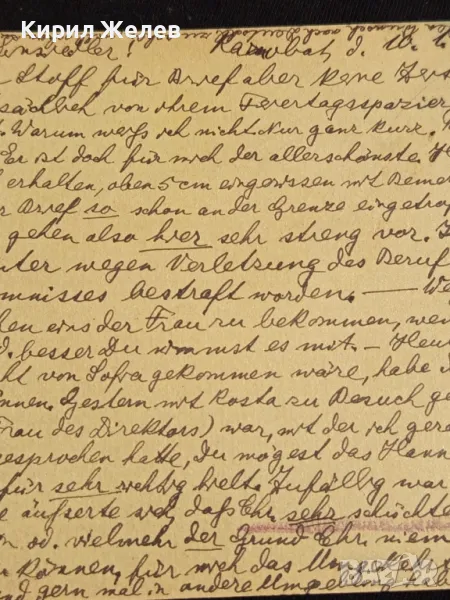 Кирил Желев
Einsiedler! Kaimobat, d. 10.
Stoff für Brief aber keine Zeit
von ihrem Feiertagsspazier
Warum weiß ich nicht. Nur ganz kurz.
Er ist doch für mich der allerschönste
erhalten, oben 5 cm eingerissen mit Bemer
Brief so schon an der Grenze eingetrof
gehen also hier sehr streng vor.
unter wegen Verletzung des Beruf
mnisses bestraft worden. — We
eins der Frau zu bekommen, wen
besser Du nimmst es mit. – Heu
ht von Sofia gekommen wäre, habe
nnen. Gestern mit Kosta zu Besuch ge
Frau des Direktors) war, mit der ich gera
esprochen hatte, Du mögest das Hann
für sehr wichtig hielt. Zufällig war
e äußerte sich, daß Ehr. sehr schüchte
n od. vielmehr der Grund Ehr. niem
können, für mich das Umgekehr
und gern mal in andere Umgebung